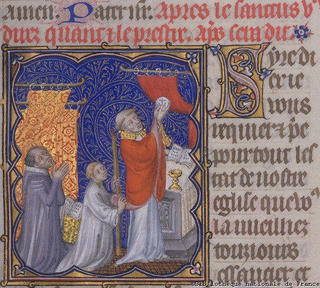 amen. Pater nr. Apres le sanctus v
direz quant le prestre. Aps sera dit
Syre di
ex ie
vous
requier et pe
pour tout les
tat de nostre
eglise que vo
la vueilliez
touziours
essaucier et
Bibliothèque nationale de France